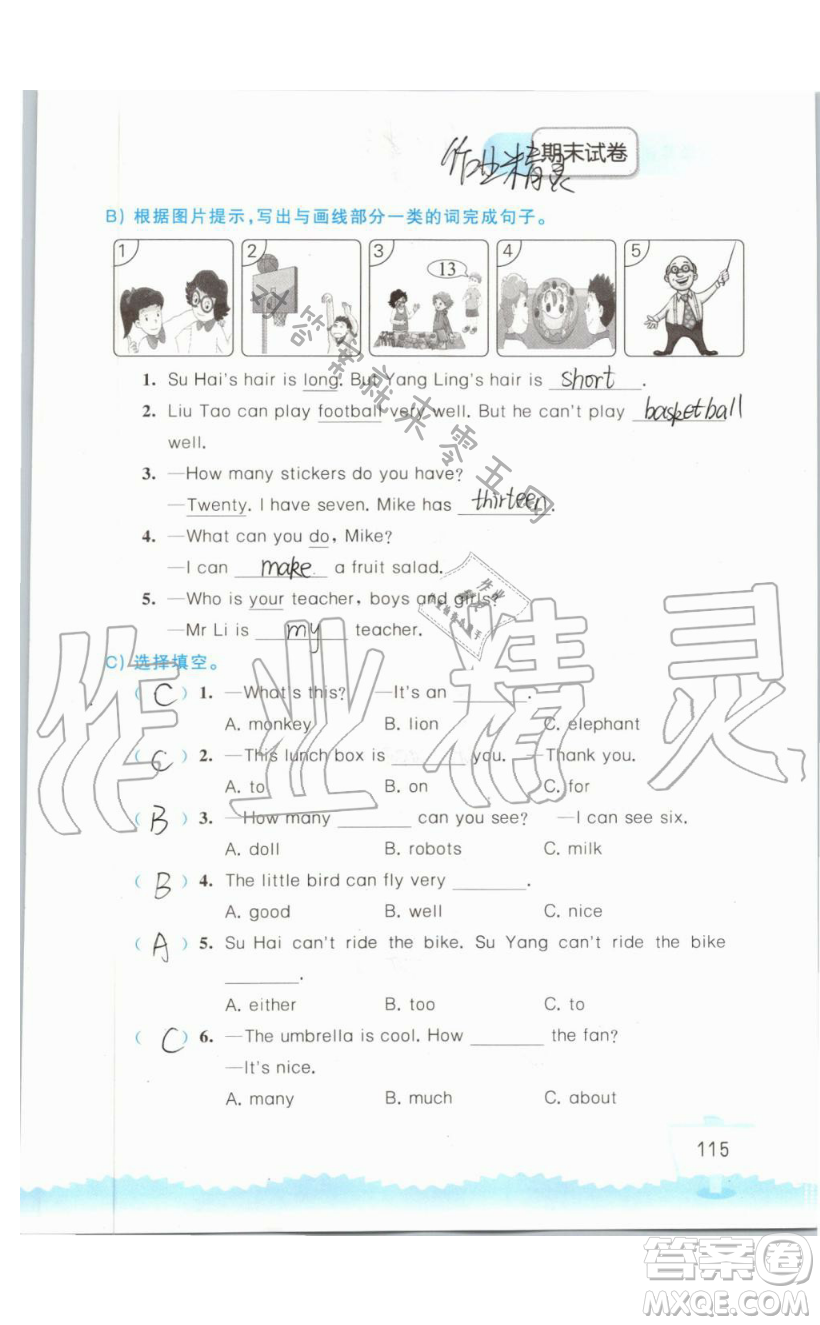 作业精灵
期末试卷
B) 根据图片提示，写出与画线部分一类的词完成句子。
1 2 3 13 4 5
1. Su Hai's hair is long. But Yang Ling's hair is short.
2. Liu Tao can play football very well. But he can't play basketball
well.
3. —How many stickers do you have?
—Twenty. I have seven. Mike has thirteen.
4. —What can you do, Mike?
—I can make a fruit salad.
5. —Who is your teacher, boys and girls?
—Mr Li is my teacher.
C) 选择填空。
( C ) 1. —What's this? —It's an ______.
A. monkey B. lion C. elephant
( C ) 2. —This lunch box is ______ you. —Thank you.
A. to B. on C. for
( B ) 3. —How many ______ can you see? —I can see six.
A. doll B. robots C. milk
( B ) 4. The little bird can fly very ______.
A. good B. well C. nice
( A ) 5. Su Hai can't ride the bike. Su Yang can't ride the bike
______.
A. either B. too C. to
( C ) 6. —The umbrella is cool. How ______ the fan?
—It's nice.
A. many B. much C. about
115
对答案就来零五网
作业精灵
答案卷
MXQE.COM